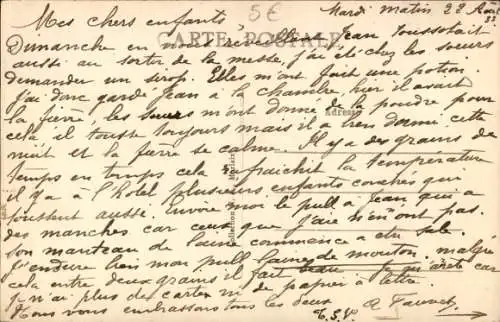 5€
Mardi matin 22 Août
33
Mes chers enfants
CARTE POSTALE
Dimanche en nous réveillant Jean toussotait
aussi au sortir de la messe, j'ai été chez les sœurs
demander un sirop. Elles m'ont fait une potion.
j'ai donc gardé Jean à la chambre, hier il avait
la fièvre, les sœurs m'ont donné de la poudre pour
Adresse
cela, il tousse toujours mais il a bien dormi cette
nuit et la fièvre se calme. Il y a des grains de
temps en temps cela rafraichit la température
il y a à l'hotel plusieurs enfants couchés qui
toussent aussi. Envoie moi le pull à Jean qui a
des manches car ceux que j'ai n'en ont pas.
son manteau de laine commence a etre sale.
J'endure bien mon pull laine de mouton. malgré
cela entre deux grains il fait beau. Je m'arrête car
je n'ai plus de cartes ni de papier à lettre.
Nous vous embrassons tous les deux
T.S.V.P.